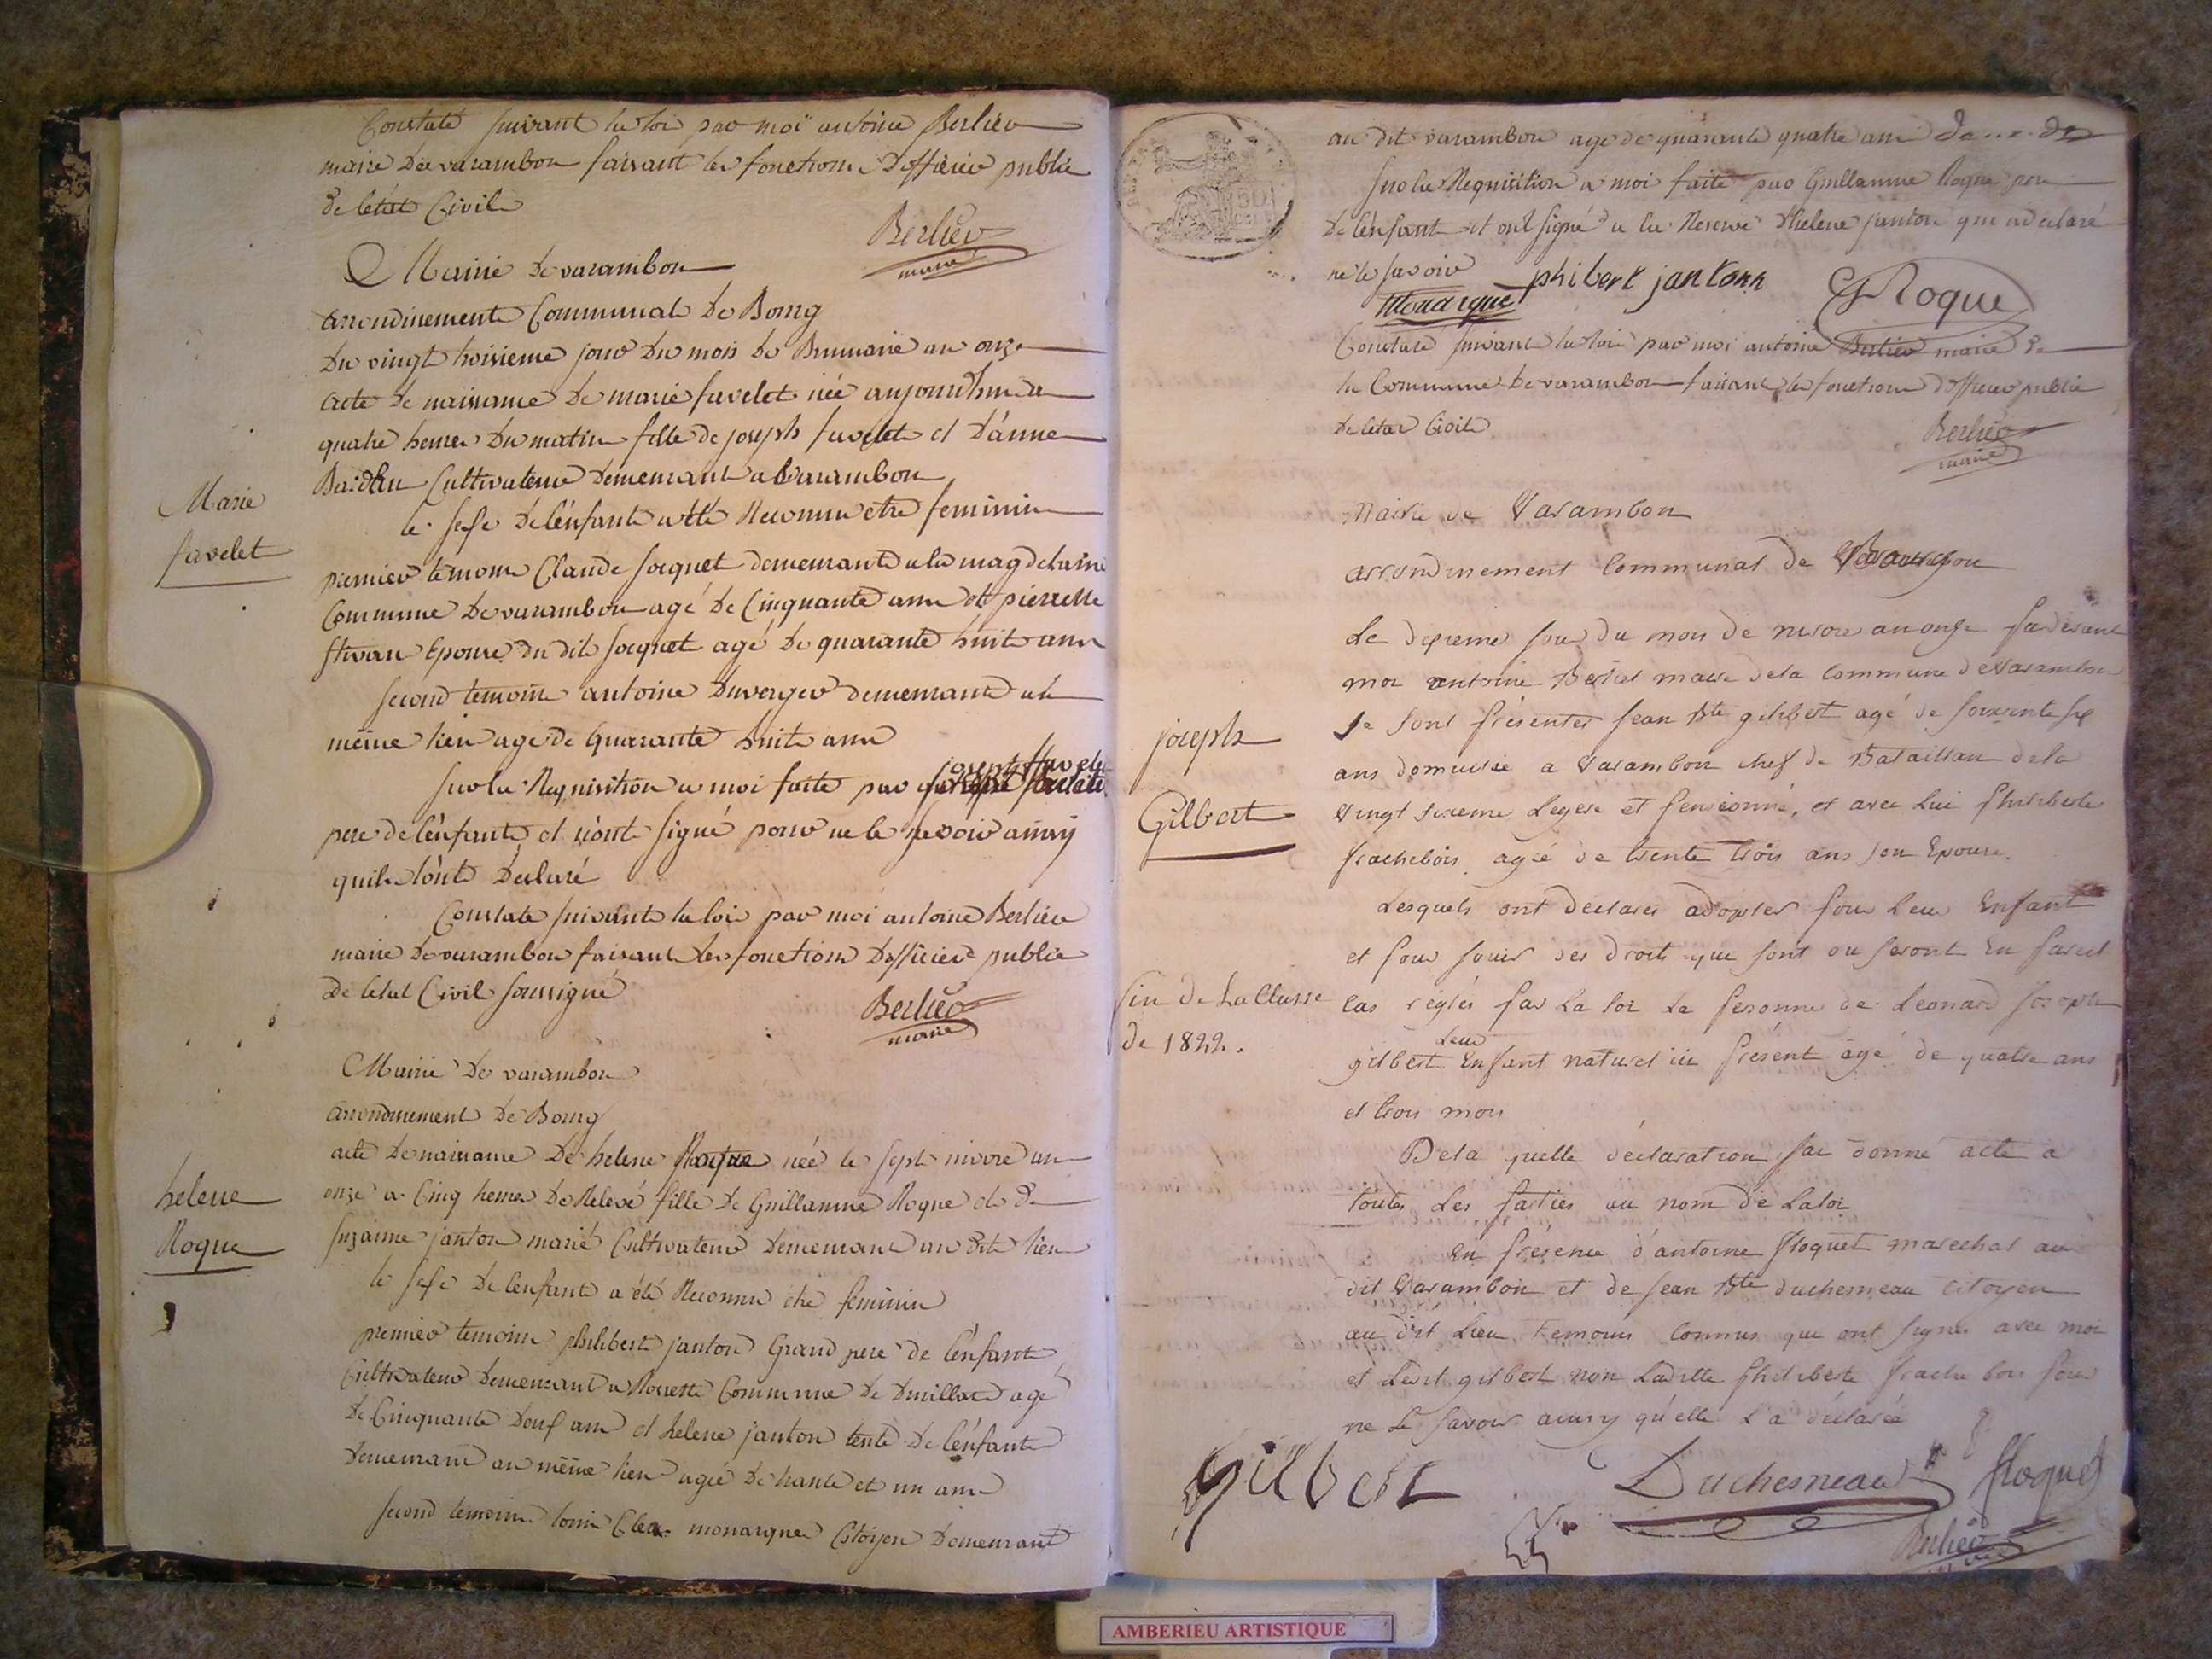 Constaté suivant la loi par moi antoine Berlier
maire de varambon faisant les fonctions d'officier public
de létat Civil
Berlier
maire
Mairie de varambon
arrondissement Communal de Bourg
du vingt troisieme jour du mois de Brumaire an onze
acte de naissance de marie favelet née aujourdhui a
quatre heures du matin fille de joseph favelet et d'anne
Cultivateur demeurant a varambon
Marie
favelet
le sexe de lénfant a été Reconnu etre feminin
premier temoin Claude Jocquet demeurant a la magdelaine
Commune de varambon agé de Cinquante ans et pierrette
Epouse du dit Jocquet agé de quarante huit ans
second temoin antoine duverger demeurant au
même lieu agé de quarante huit ans
sur la Requisition a moi faite par joseph favelet
pere de lénfant et n'ont signé pour ne le savoir ainsy
quils lont déclaré
Constaté suivant la loi par moi antoine Berlier
maire de varambon faisant les fonctions d'officier public
de létat Civil soussigné
Berlier
maire
Mairie de varambon
arrondissement de Bourg
acte de naissance de helene Roque née le sept nivore an
onze a Cinq heures de Relevé fille de Guillaume Roque et de
Suzanne janton marié Cultivateur demeurant au dit lieu
helene
Roque
le sexe de lenfant a été Reconnu etre feminin
premier temoin philibert janton Grand pere de lénfant
Cultivateur demeurant a Commune de druillat agé
de Cinquante douze ans et helene janton tente de lénfant
demeurant au même lieu agée de trante et un ans
second temoin monarque Citoyen demeurant
au dit varambon agé de quarante quatre ans
sur la Requisition a moi faite par Guillaume Roque pere
de lénfant et ont signé a la Reserve d'helene janton qui a declaré
ne le savoir
Monarque philibert jantonn GRoque
Constaté suivant la loi par moi antoine Berlier maire de
la Commune de varambon faisant les fonctions d'officier public
de létat Civil
Berlier
maire
Mairie de Varambon
arrondissement Communal de
Le jour du mois de nivore an onze pardevant
moi antoine Berlier maire de la Commune de Varambon
se sont présentés jean Bte gilbert agé de soixante six
ans domicilié a Varambon chef de Bataillon de la
Vingt sixieme Legere et pensionné, et avec lui philiberte
frachebois agée de trente trois ans son Epouse.
joseph
Gilbert
Lesquels ont declarés adopter pour Leur Enfant
et pour jouir des droits que sont ou seront En pareil
cas réglés par La loi la personne de Leonard joseph
Leur
gilbert Enfant naturel ici présent agé de quatre ans
et trois mois
fin de La Classe
de 1822.
De la quelle déclaration j'ai donné acte a
toutes Les parties au nom de La loi
En présence d'antoine floquet marechal au
dit Varambon et de jean Bte duchesneau Citoyen
au dit Lieu temoins Connus qui ont signés avec moi
et Ledit gilbert non Laditte philiberte frachebois pour
ne Le savoir ainsy qu'elle L'a déclarée
Gilbert Duchesneau floquet
Berlier
AMBERIEU ARTISTIQUE